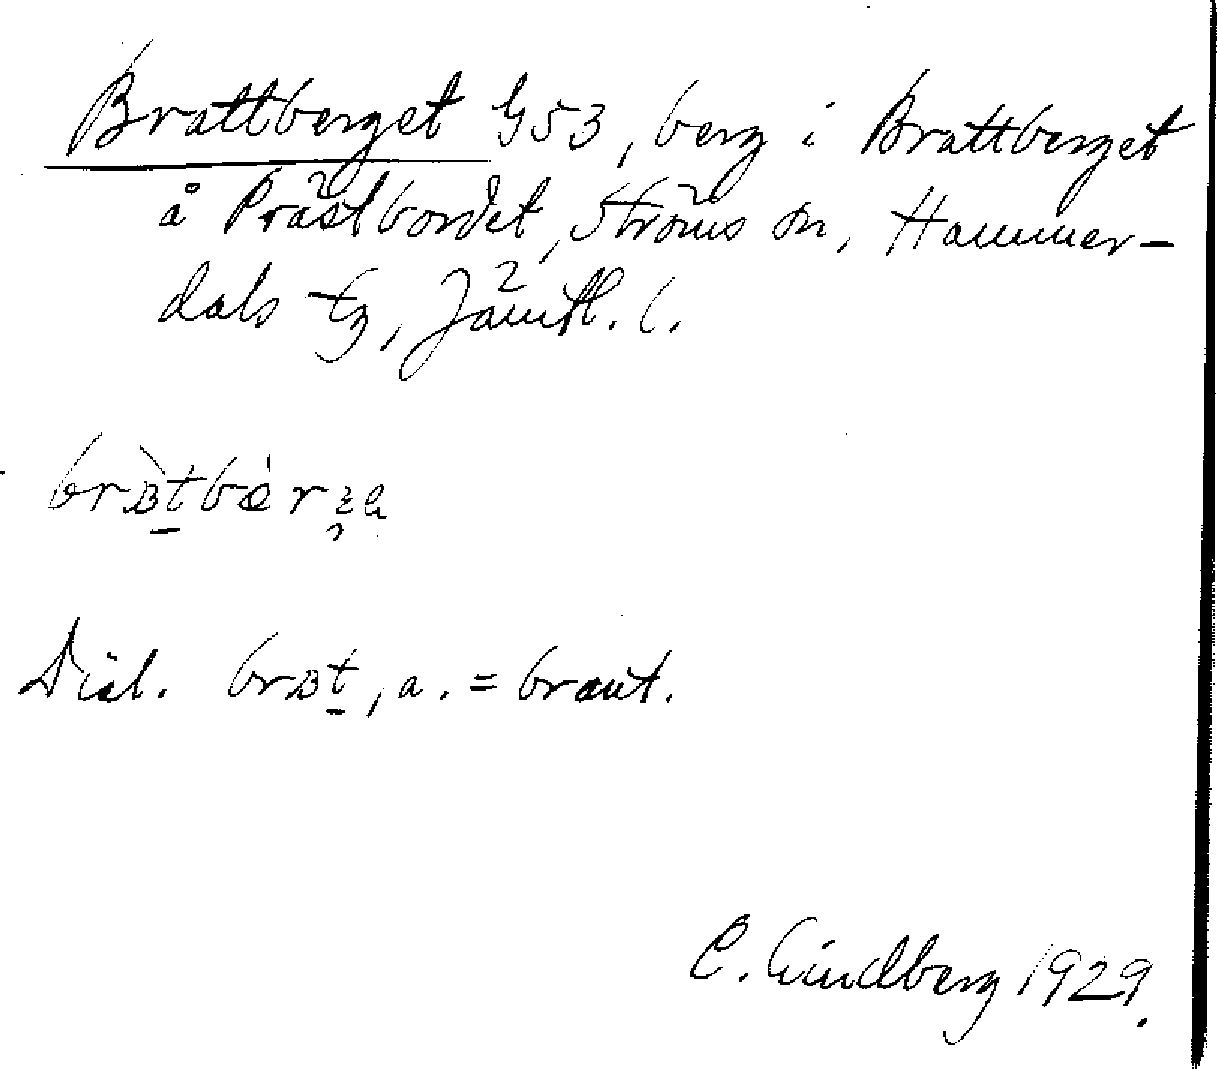 Brattberget G53, berg i Brattberget
å Prästbordet, Ströms sn, Hammer-
dals tg, Jämtl. l.
Dial. , a. = brant.
C. Lindberg 1929.